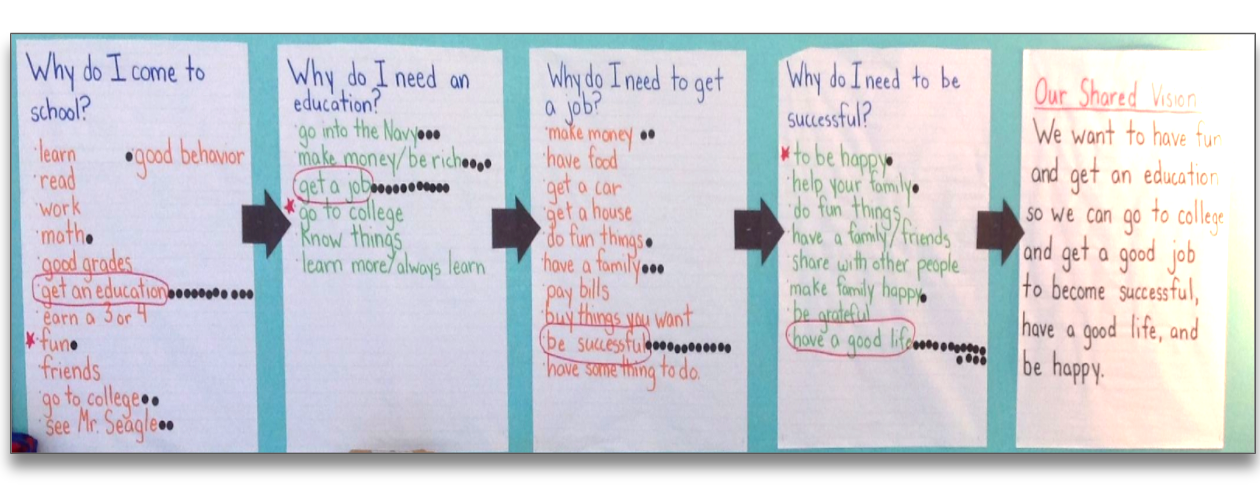 Why do I come to
school?
learn
good behavior
read
work
math
good grades
get an education
earn a 3 or 4
fun
friends
go to college
see Mr. Seagle
Why do I need an
education?
go into the Navy
make money/be rich
get a job
go to college
know things
learn more/always learn
Why do I need to get
a job?
make money
have food
get a car
get a house
do fun things
have a family
pay bills
buy things you want
be successful
have something to do.
Why do I need to be
successful?
to be happy
help your family
do fun things
have a family/friends
share with other people
make family happy
be grateful
have a good life
Our Shared Vision
We want to have fun
and get an education
so we can go to college
and get a good job
to become successful,
have a good life, and
be happy.